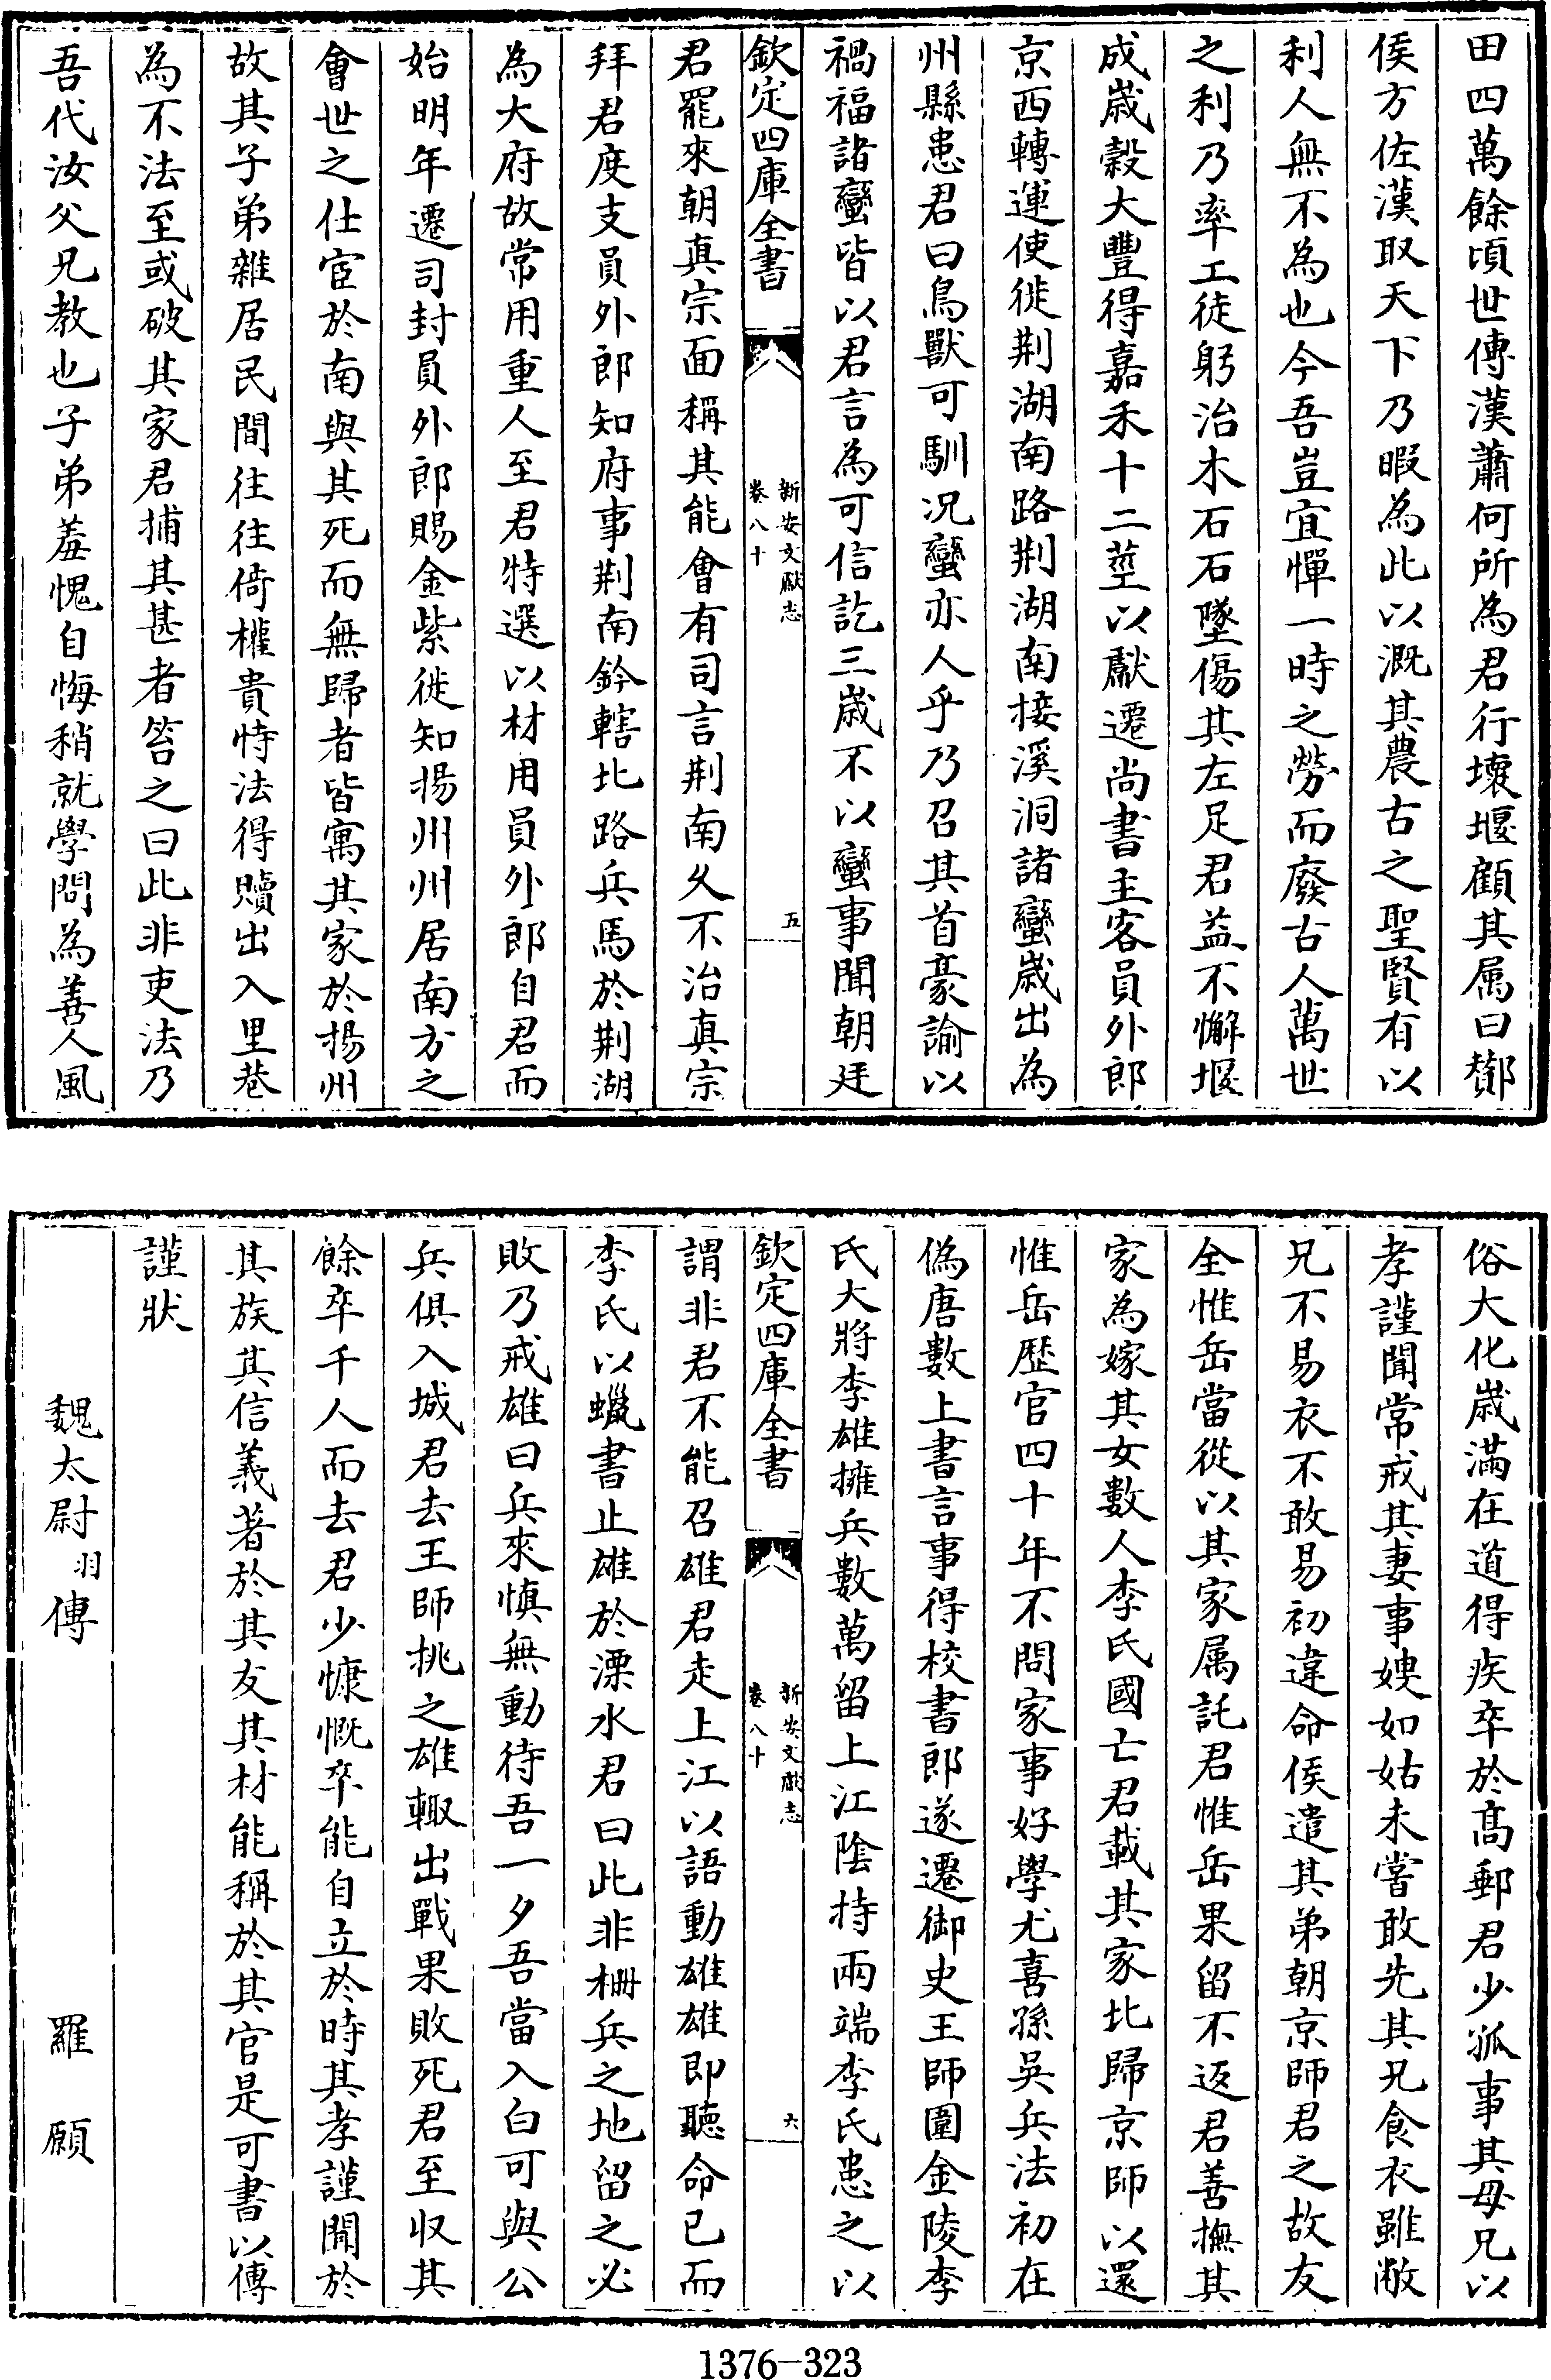 田四萬餘頃世傳漢蕭何所為君行壞堰顧其属曰酇
侯方佐漢取天下乃暇為此以溉其農古之聖賢有以
利人無不為也今吾豈宜憚一時之勞而廢古人萬世
之利乃率工徒躬治木石石墜傷其左足君益不懈堰
成歳榖大豐得嘉禾十二莖以獻遷尚書主客員外郎
京西轉運使徙荆湖南路荆湖南接溪洞諸蠻歳出為
州縣患君曰鳥獸可馴况蠻亦人乎乃召其首豪諭以
禍福諸蠻皆以君言為可信訖三歳不以蠻事聞朝廷
欽定四庫全書
新安文獻志
卷八十
五
君罷來朝真宗面稱其能會有司言荆南乆不治真宗
拜君度支員外郎知府事荆南鈐轄北路兵馬於荆湖
為大府故常用重人至君特選以材用員外郎自君而
始明年遷司封員外郎賜金紫徙知揚州州居南方之
會世之仕宦於南與其死而無歸者皆寓其家於揚州
故其子弟雜居民間往往倚權貴恃法得贖出入里巷
為不法至或破其家君捕其甚者笞之曰此非吏法乃
吾代汝父兄教也子弟羞愧自悔稍就學問為善人風
俗大化歳滿在道得疾卒於髙郵君少孤事其母兄以
孝謹聞常戒其妻事嫂如姑未嘗敢先其兄食衣雖敝
兄不易衣不敢易初違命侯遣其弟朝京師君之故友
全惟岳當從以其家属託君惟岳果留不返君善撫其
家為嫁其女數人李氏國亡君載其家北歸京師以還
惟岳歴官四十年不問家事好學尤喜孫吳兵法初在
偽唐數上書言事得校書郎遂遷御史王師圍金陵李
氏大將李雄擁兵數萬留上江陰持兩端李氏患之以
欽定四庫全書
新安文獻志
卷八十
六
謂非君不能召雄君走上江以語動雄雄即聽命已而
李氏以蠟書止雄於溧水君曰此非栅兵之地留之必
敗乃戒雄曰兵來慎無動待吾一夕吾當入白可與公
兵俱入城君去王師挑之雄輙出戰果敗死君至収其
餘卒千人而去君少慷慨卒能自立於時其孝謹聞於
其族其信義著於其友其材能稱於其官是可書以傳
謹狀
魏太尉羽傳　羅願
1376-323